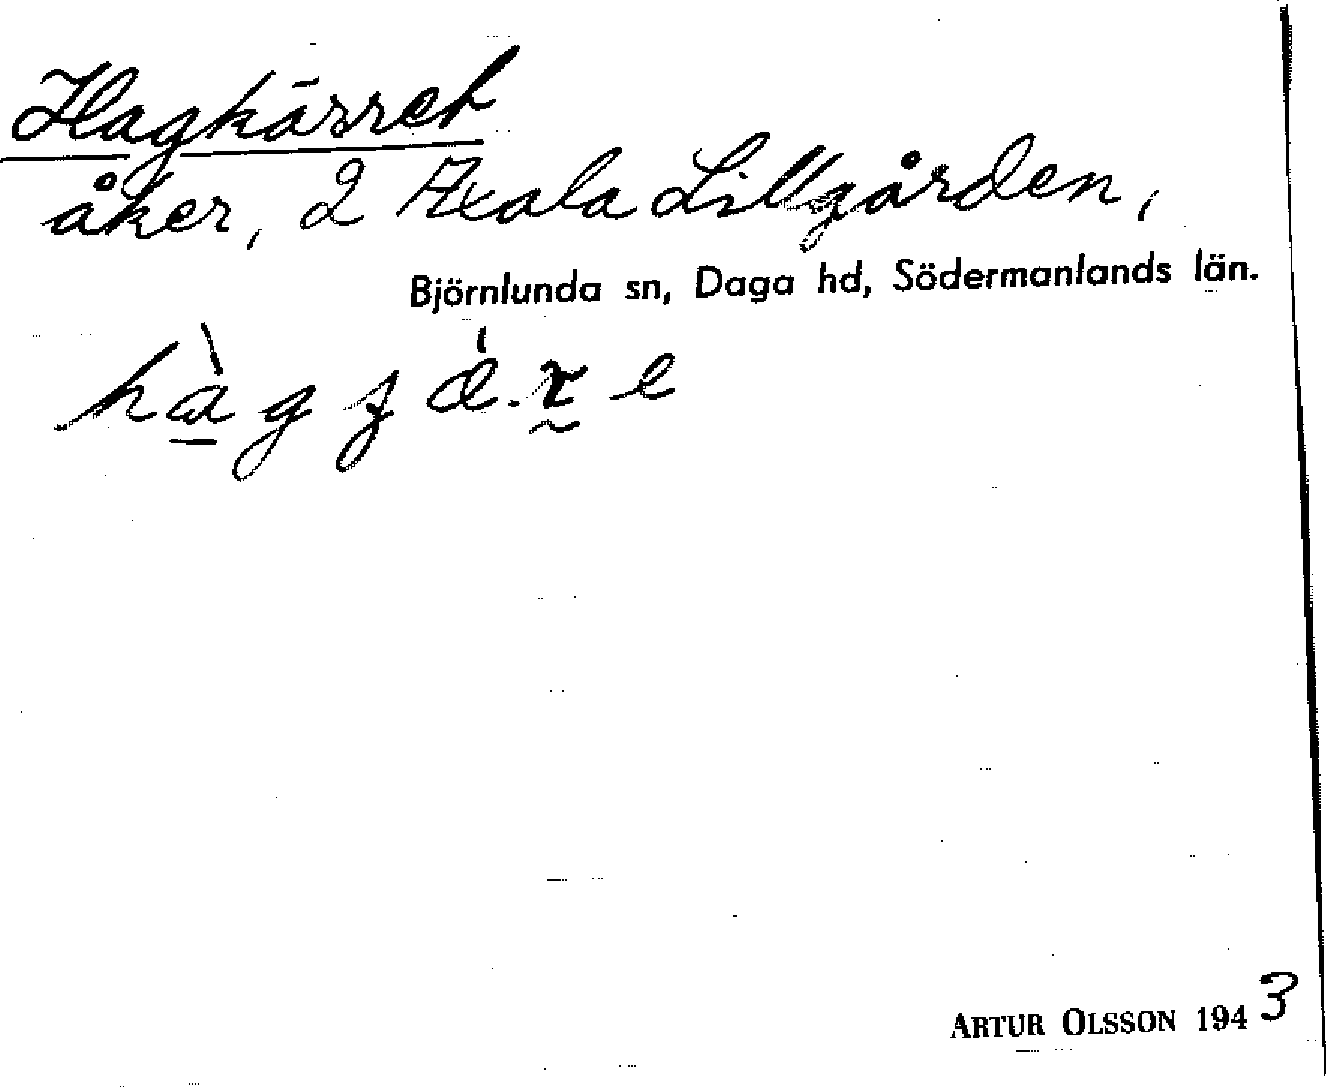 Hagkärret
åker, 2 Axala Lillgården,
Björnlunda sn, Daga hd, Södermanlands län.
ARTUR OLSSON 1943